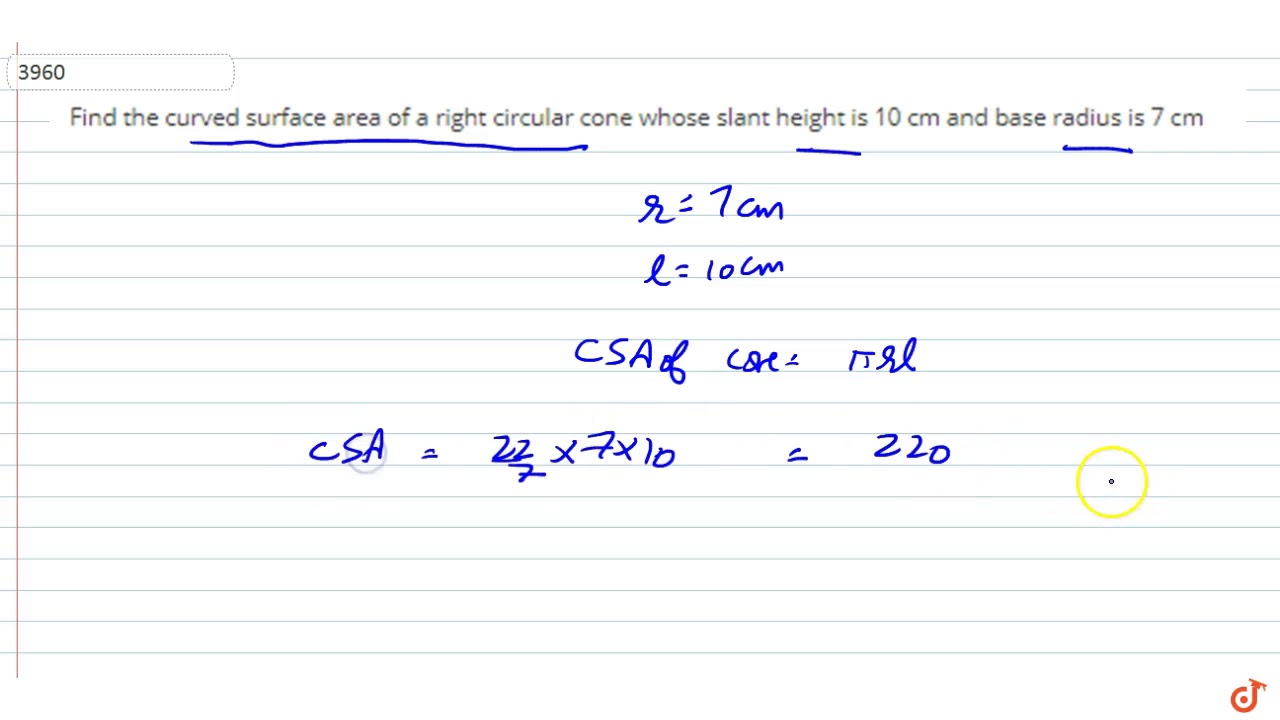 3960
Find the curved surface area of a right circular cone whose slant height is 10 cm and base radius is 7 cm
r = 7 cm
l = 10 cm
CSA of cone = πrl
CSA = 22/7 × 7 × 10 = 220